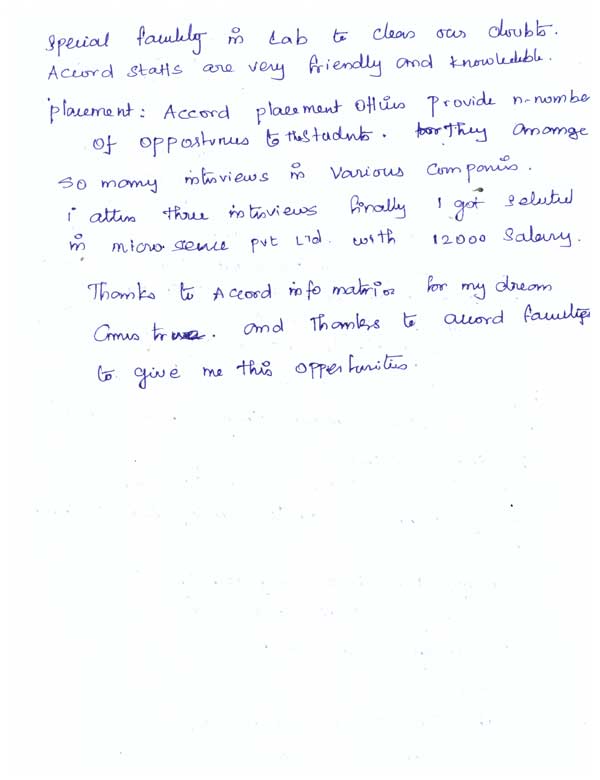 Special faculty in Lab to clear our doubts.
Accord staffs are very friendly and knowledable.
placement: Accord placement offices provide n-number
of opportunies to the students. They arrange
so many interviews in various companies.
i atten three interviews finally I got selected
in micro sence pvt Ltd. with 12000 Salary.
Thanks to Accord info matrix for my dream
comes true. and Thanks to accord faculty
to give me this opportunities.